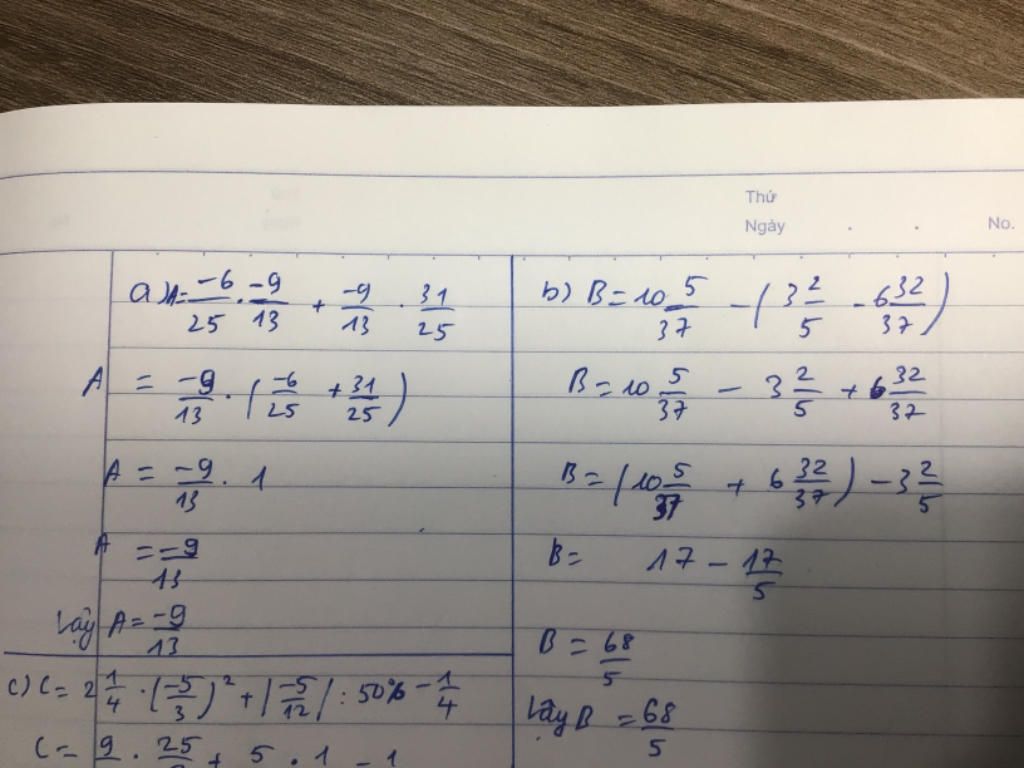 Thứ
Ngày . . No.
a) A = -6/25 . -9/13 + -9/13 . 31/25
A = -9/13 . (-6/25 + 31/25)
A = -9/13 . 1
A = -9/13
Vậy A = -9/13
b) B = 10 5/37 - (3 2/5 - 6 32/37)
B = 10 5/37 - 3 2/5 + 6 32/37
B = (10 5/37 + 6 32/37) - 3 2/5
B = 17 - 17/5
B = 68/5
Vậy B = 68/5
c) C = 2 1/4 . (-5/3)² + |-5/12| : 50% - 1/4
C = 9 . 25 + 5 . 1 - 1